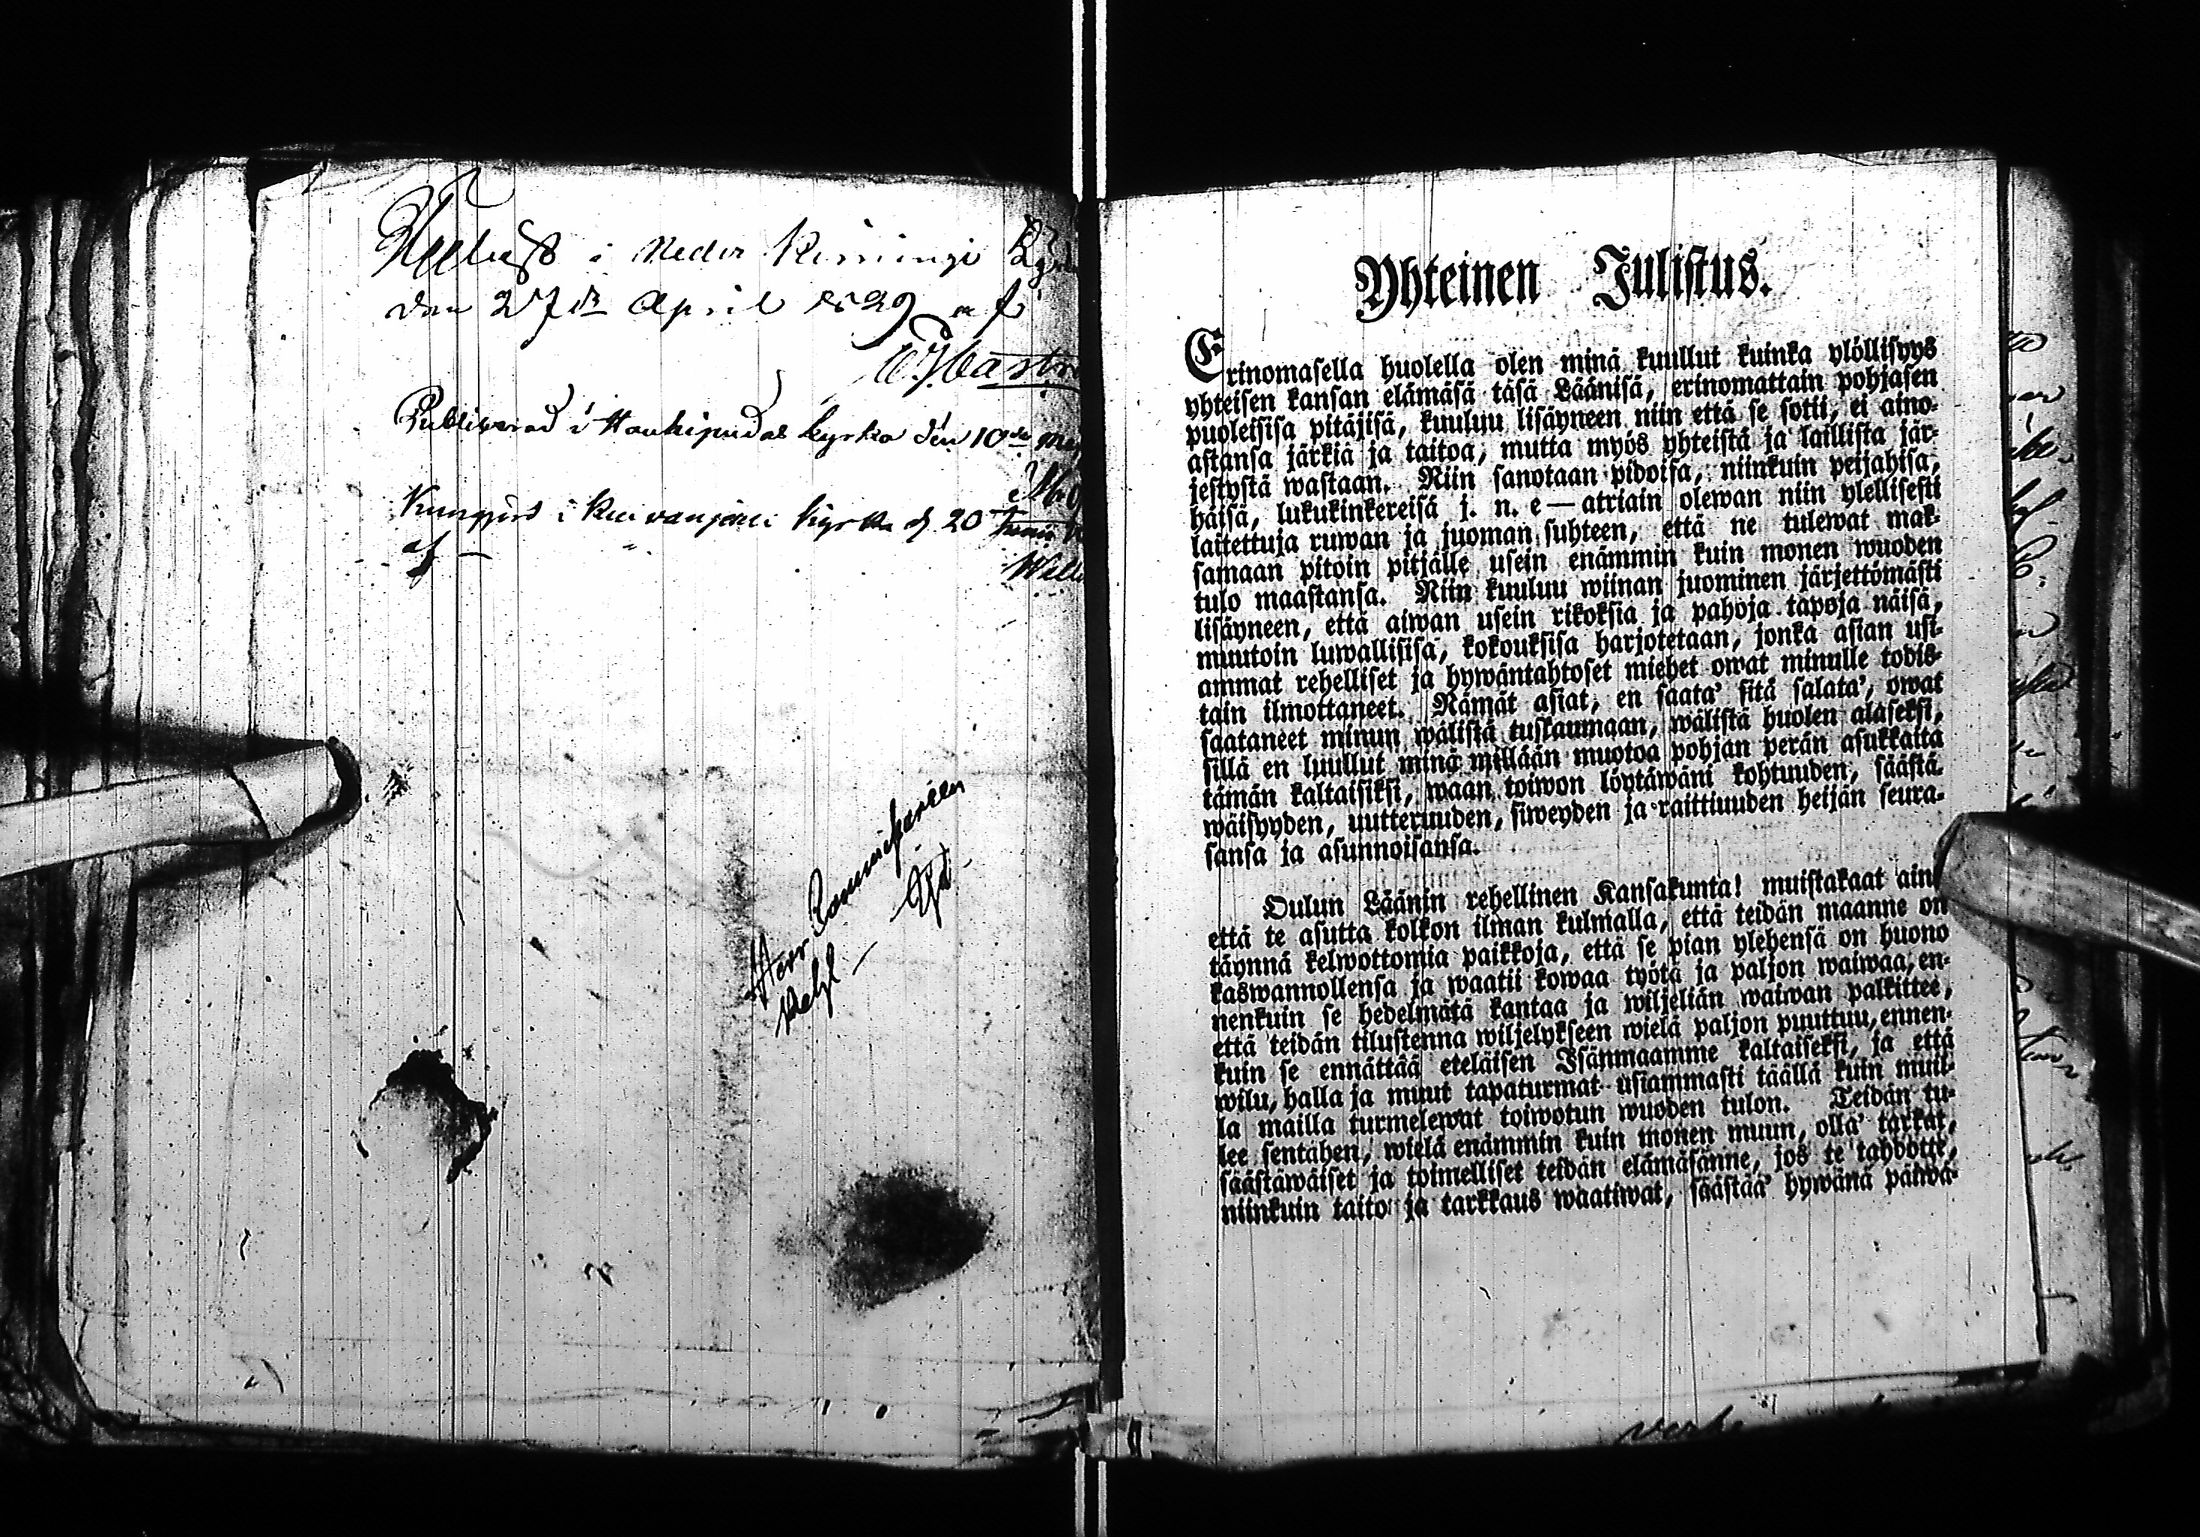 i Neder Kiminge
den 27de April 1829 af
Publicerad i Haukipudas kyrka den 10de
Kungjord i Kuivaniemi kyrka d. 20 Junii
af
Herr
Yhteinen Julistus.
Erinomasella huolella olen minä kuullut kuinka ylöllisyys
yhteisen kansan elämäsä täsä Läänisä, erinomattain pohjasen
puoleisisa pitäjisä, kuuluu lisäyneen niin että se sotti, ei aino-
astansa järkiä ja taitoa, mutta myös yhteistä ja laillista jär-
jestystä wastaan. Niin sanotaan pidoisa, niinkuin peijahisa,
häisä, lukukinkereisä j. n. e — atriain olewan niin ylellisesti
laitettuja ruwan ja juoman suhteen, että ne tulewat mak-
samaan pitoin pitjälle usein enämmin kuin monen wuoden
tulo maastansa. Niin kuuluu wiinan juominen järjettömästi
lisäyneen, että aiwan usein rikoksia ja pahoja tapoja näisä,
muutoin luwallisisa, kokouksisa harjotetaan, jonka asian usi-
ammat rehelliset ja hywäntahtoset miehet owat minulle todis-
tain ilmottaneet. Nämät asiat, en saata' sitä salata', owat
saataneet minun wälistä tuskaumaan, wälistä huolen alaseksi,
sillä en luullut minä millään muotoa pohjan perän asukkaita
tämän kaltaisiksi, waan toiwon löytäwäni kohtuuden, säästä-
wäisyyden, uutteruuden, siweyden ja raittiuuden heijän seura-
sansa ja asunnoisansa.
Oulun Läänin rehellinen Kansakunta! muistakaat aina
että te asutta kolkon ilman kulmalla, että teidän maanne on
täynnä kelwottomia paikkoja, että se pian ylehensä on huono
kaswannollensa ja waatii kowaa työtä ja paljon waiwaa, en-
nenkuin se hedelmätä kantaa ja wiljeliän waiwan palkittee,
että teidän tilustenna wiljelykseen wielä paljon puuttuu, ennen-
kuin se ennättää eteläisen Isänmaamme kaltaiseksi, ja että
wilu, halla ja muut tapaturmat usiammasti täällä kuin muil-
la mailla turmelewat toiwotun wuoden tulon. Teidän tu-
lee sentähen, wielä enämmin kuin monen muun, olla' tarkat,
säästäwäiset ja toimelliset teidän elämäsänne, jos te tahdotte,
niinkuin taito ja tarkkaus waatiwat, säästää' hywänä päiwä-